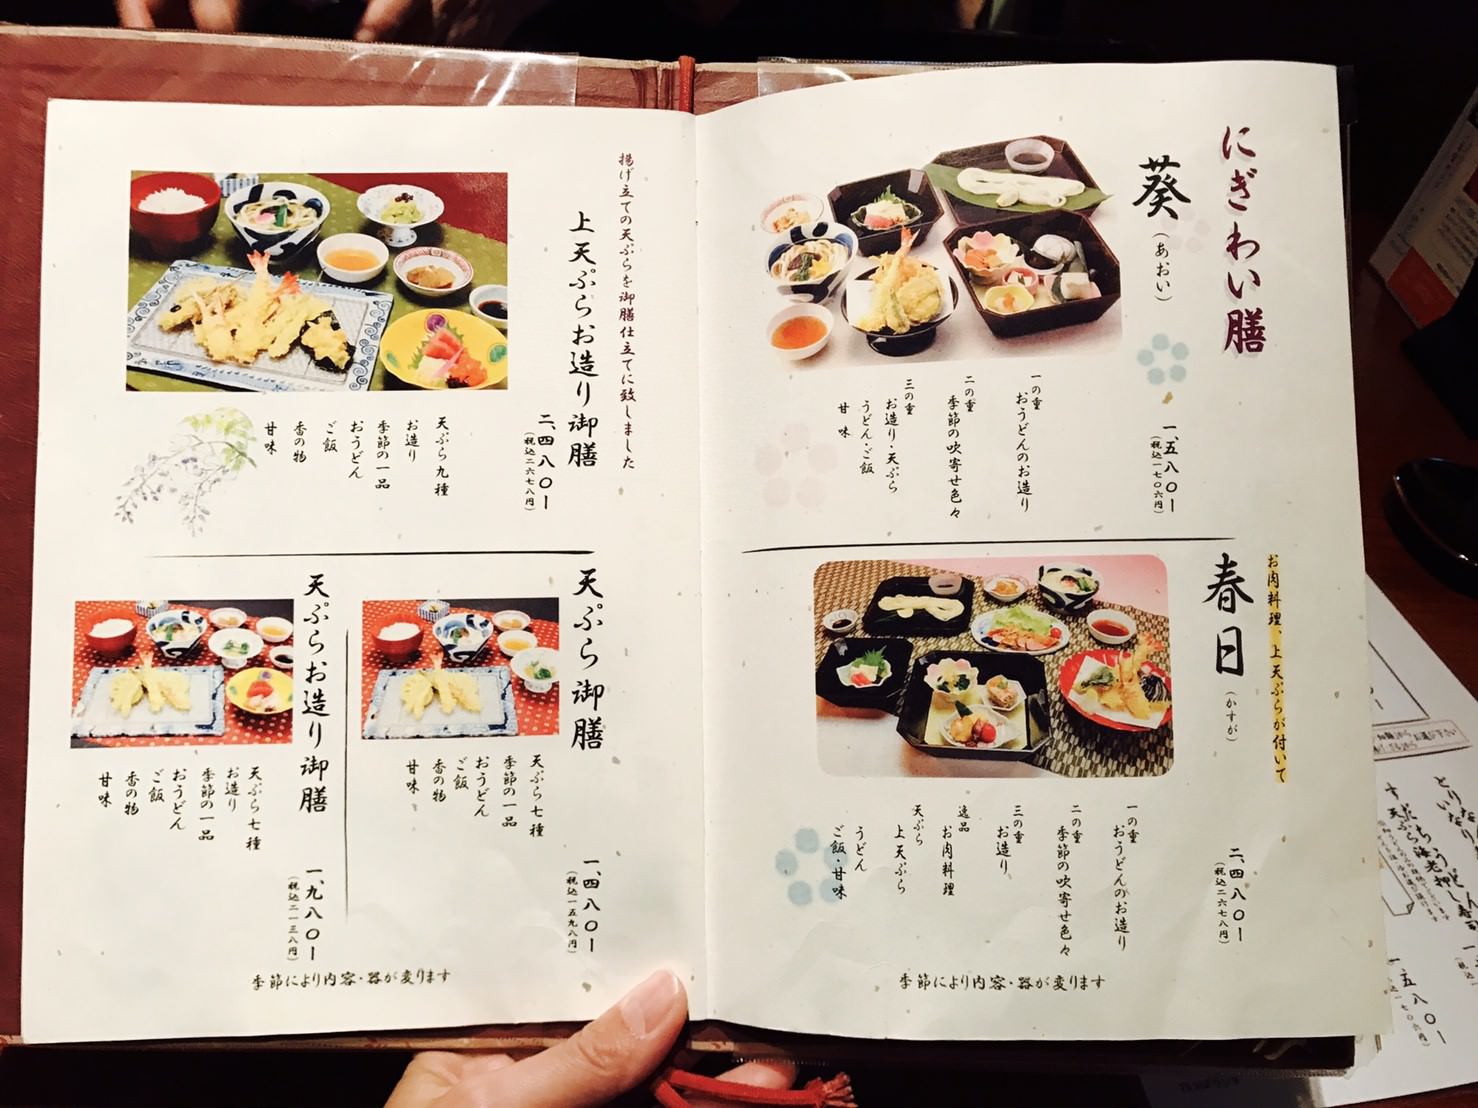 にぎわい膳
葵(あおい)
一、五八〇ー
(税込一七〇六円)
一の重
おうどんのお造り
二の重
季節の吹寄せ色々
三の重
お造り・天ぷら
うどん・ご飯
甘味
お肉料理、上天ぷらが付いて
春日(かすが)
二、四八〇ー
(税込二六七八円)
一の重
おうどんのお造り
二の重
季節の吹寄せ色々
三の重
お造り
逸品
お肉料理
天ぷら
上天ぷら
うどん
ご飯・甘味
季節により内容・器が変ります
揚げ立ての天ぷらを御膳仕立てに致しました
上天ぷらお造り御膳
二、四八〇ー
(税込二六七八円)
天ぷら九種
お造り
季節の一品
おうどん
ご飯
香の物
甘味
天ぷら御膳
一、四八〇ー
(税込一五九八円)
天ぷら七種
季節の一品
おうどん
ご飯
香の物
甘味
天ぷらお造り御膳
一、九八〇ー
(税込二一三八円)
天ぷら七種
お造り
季節の一品
おうどん
ご飯
香の物
甘味
季節により内容・器が変ります
一、五八〇ー
(税込一七〇六円)